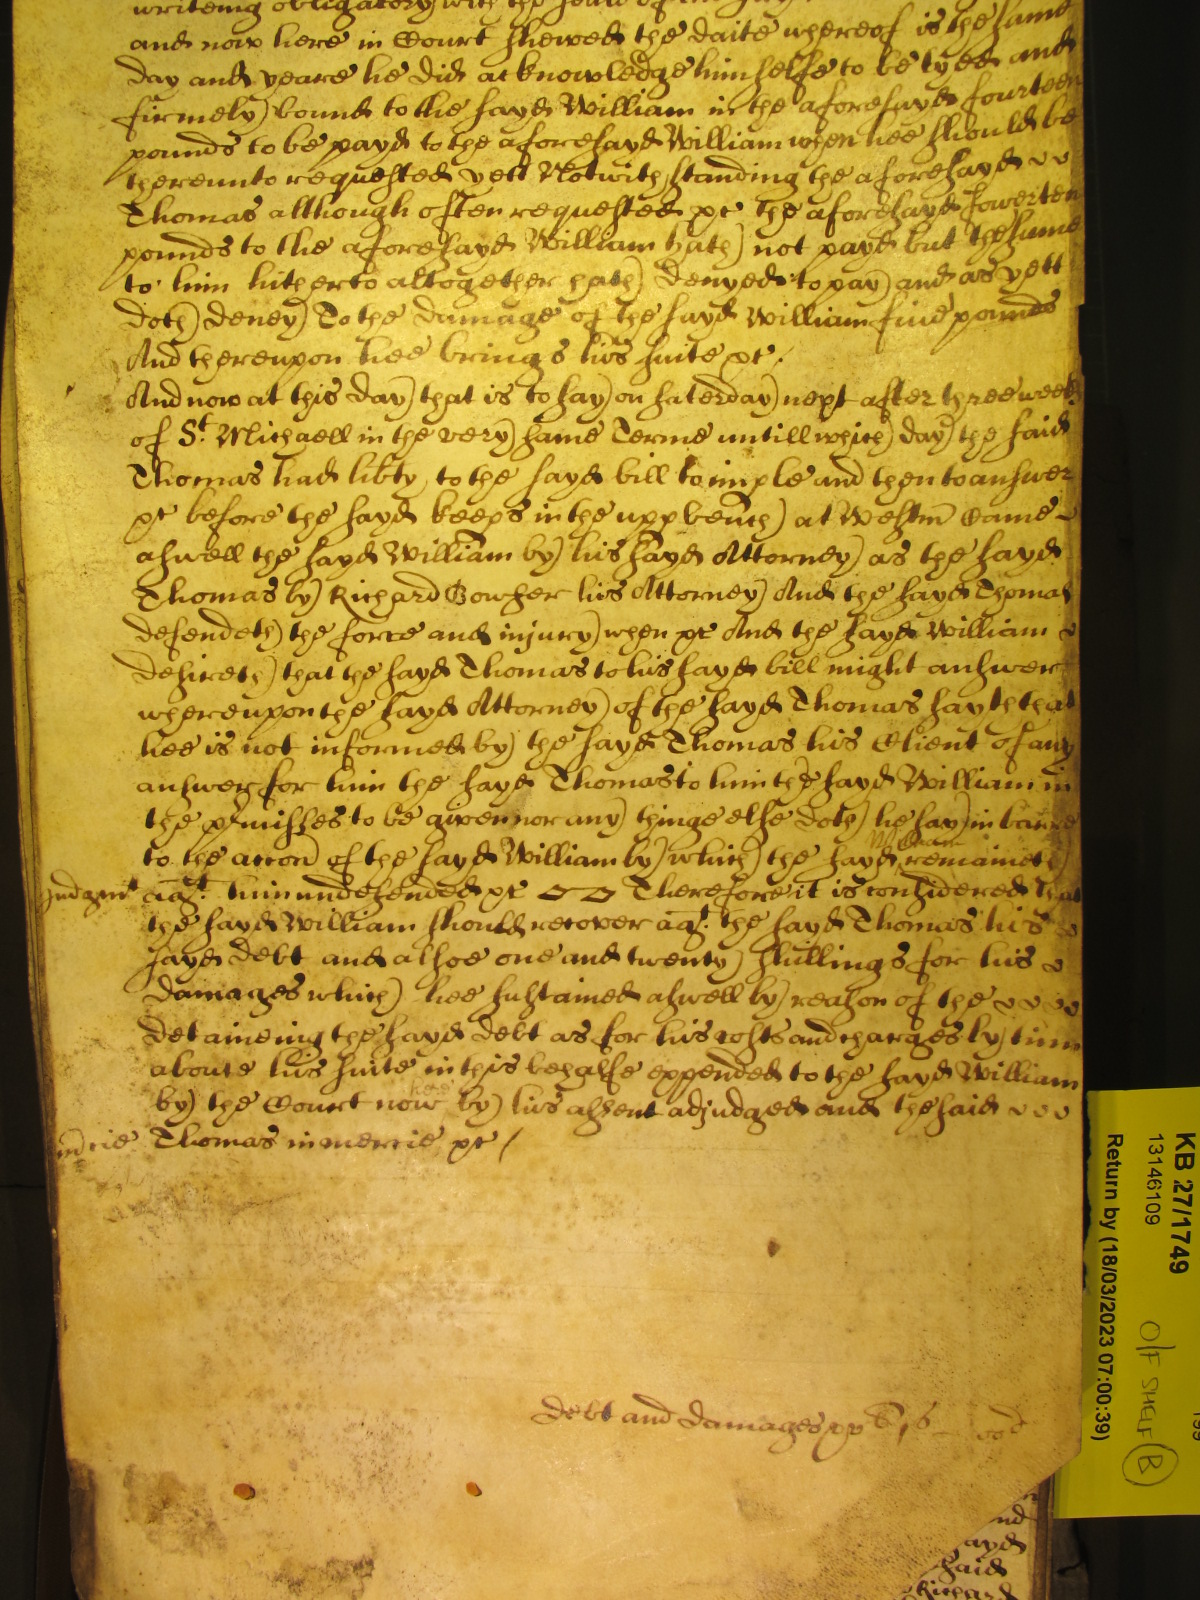 writeing obligatory with the seale of
and now here in Court shewed the daite whereof is the same
day and yeare he did acknowledge himselfe to be tyed and
firmely bound to the sayd William in the aforesayd fourteen
pounds to be payd to the aforesayd William when hee should be
thereunto requested yett Notwithstanding the aforesayd
Thomas although often requested &c the aforesayd fowerteen
pounds to the aforesayd William hath not payd but the same
to him hitherto altogether hath denyed to pay and as yett
doth deney To the damage of the sayd William five pounds
And thereupon hee brings his suite &c /
And now at this day that is to say on saterday next after three weeks
of St. Michaell in the very same Terme untill which day the said
Thomas had libty to the sayd bill to imple and then to answer
&c before the sayd keeps in the upp bench at Westm Came
aswell the sayd William by his sayd Attorney as the sayd
Thomas by Richard Gowser his Attorney And the sayd Thomas
defendeth the force and injury when &c And the sayd William
desireth that the sayd Thomas to his sayd bill might answer
whereupon the sayd Attorney of the sayd Thomas sayth that
hee is not informed by the sayd Thomas his Client of any
answer for him the sayd Thomas to him the sayd William in
the p̱misses to be given nor any thinge else doth he say in barre
to the accon of the sayd William by which the sayd William remaineth
Judgmt agt. him undefended &c Therefore it is considered that
the sayd William should recover agt. the sayd Thomas his
sayd debt and alsoe one and twenty shillings for his
damages which hee sustained aswell by reason of the
detaineing the sayd debt as for his costs and charges by him
aboute his suite in this behalfe expended to the sayd William
by the Court now here by his assent adjudged and the said
mercie Thomas in mercie &c /
debt and damages xv li 1 s ood
nd
ayd
said
Richard
KB 27/1749
13146109
Return by (18/03/2023 07:00:39)
O/F SHELF B